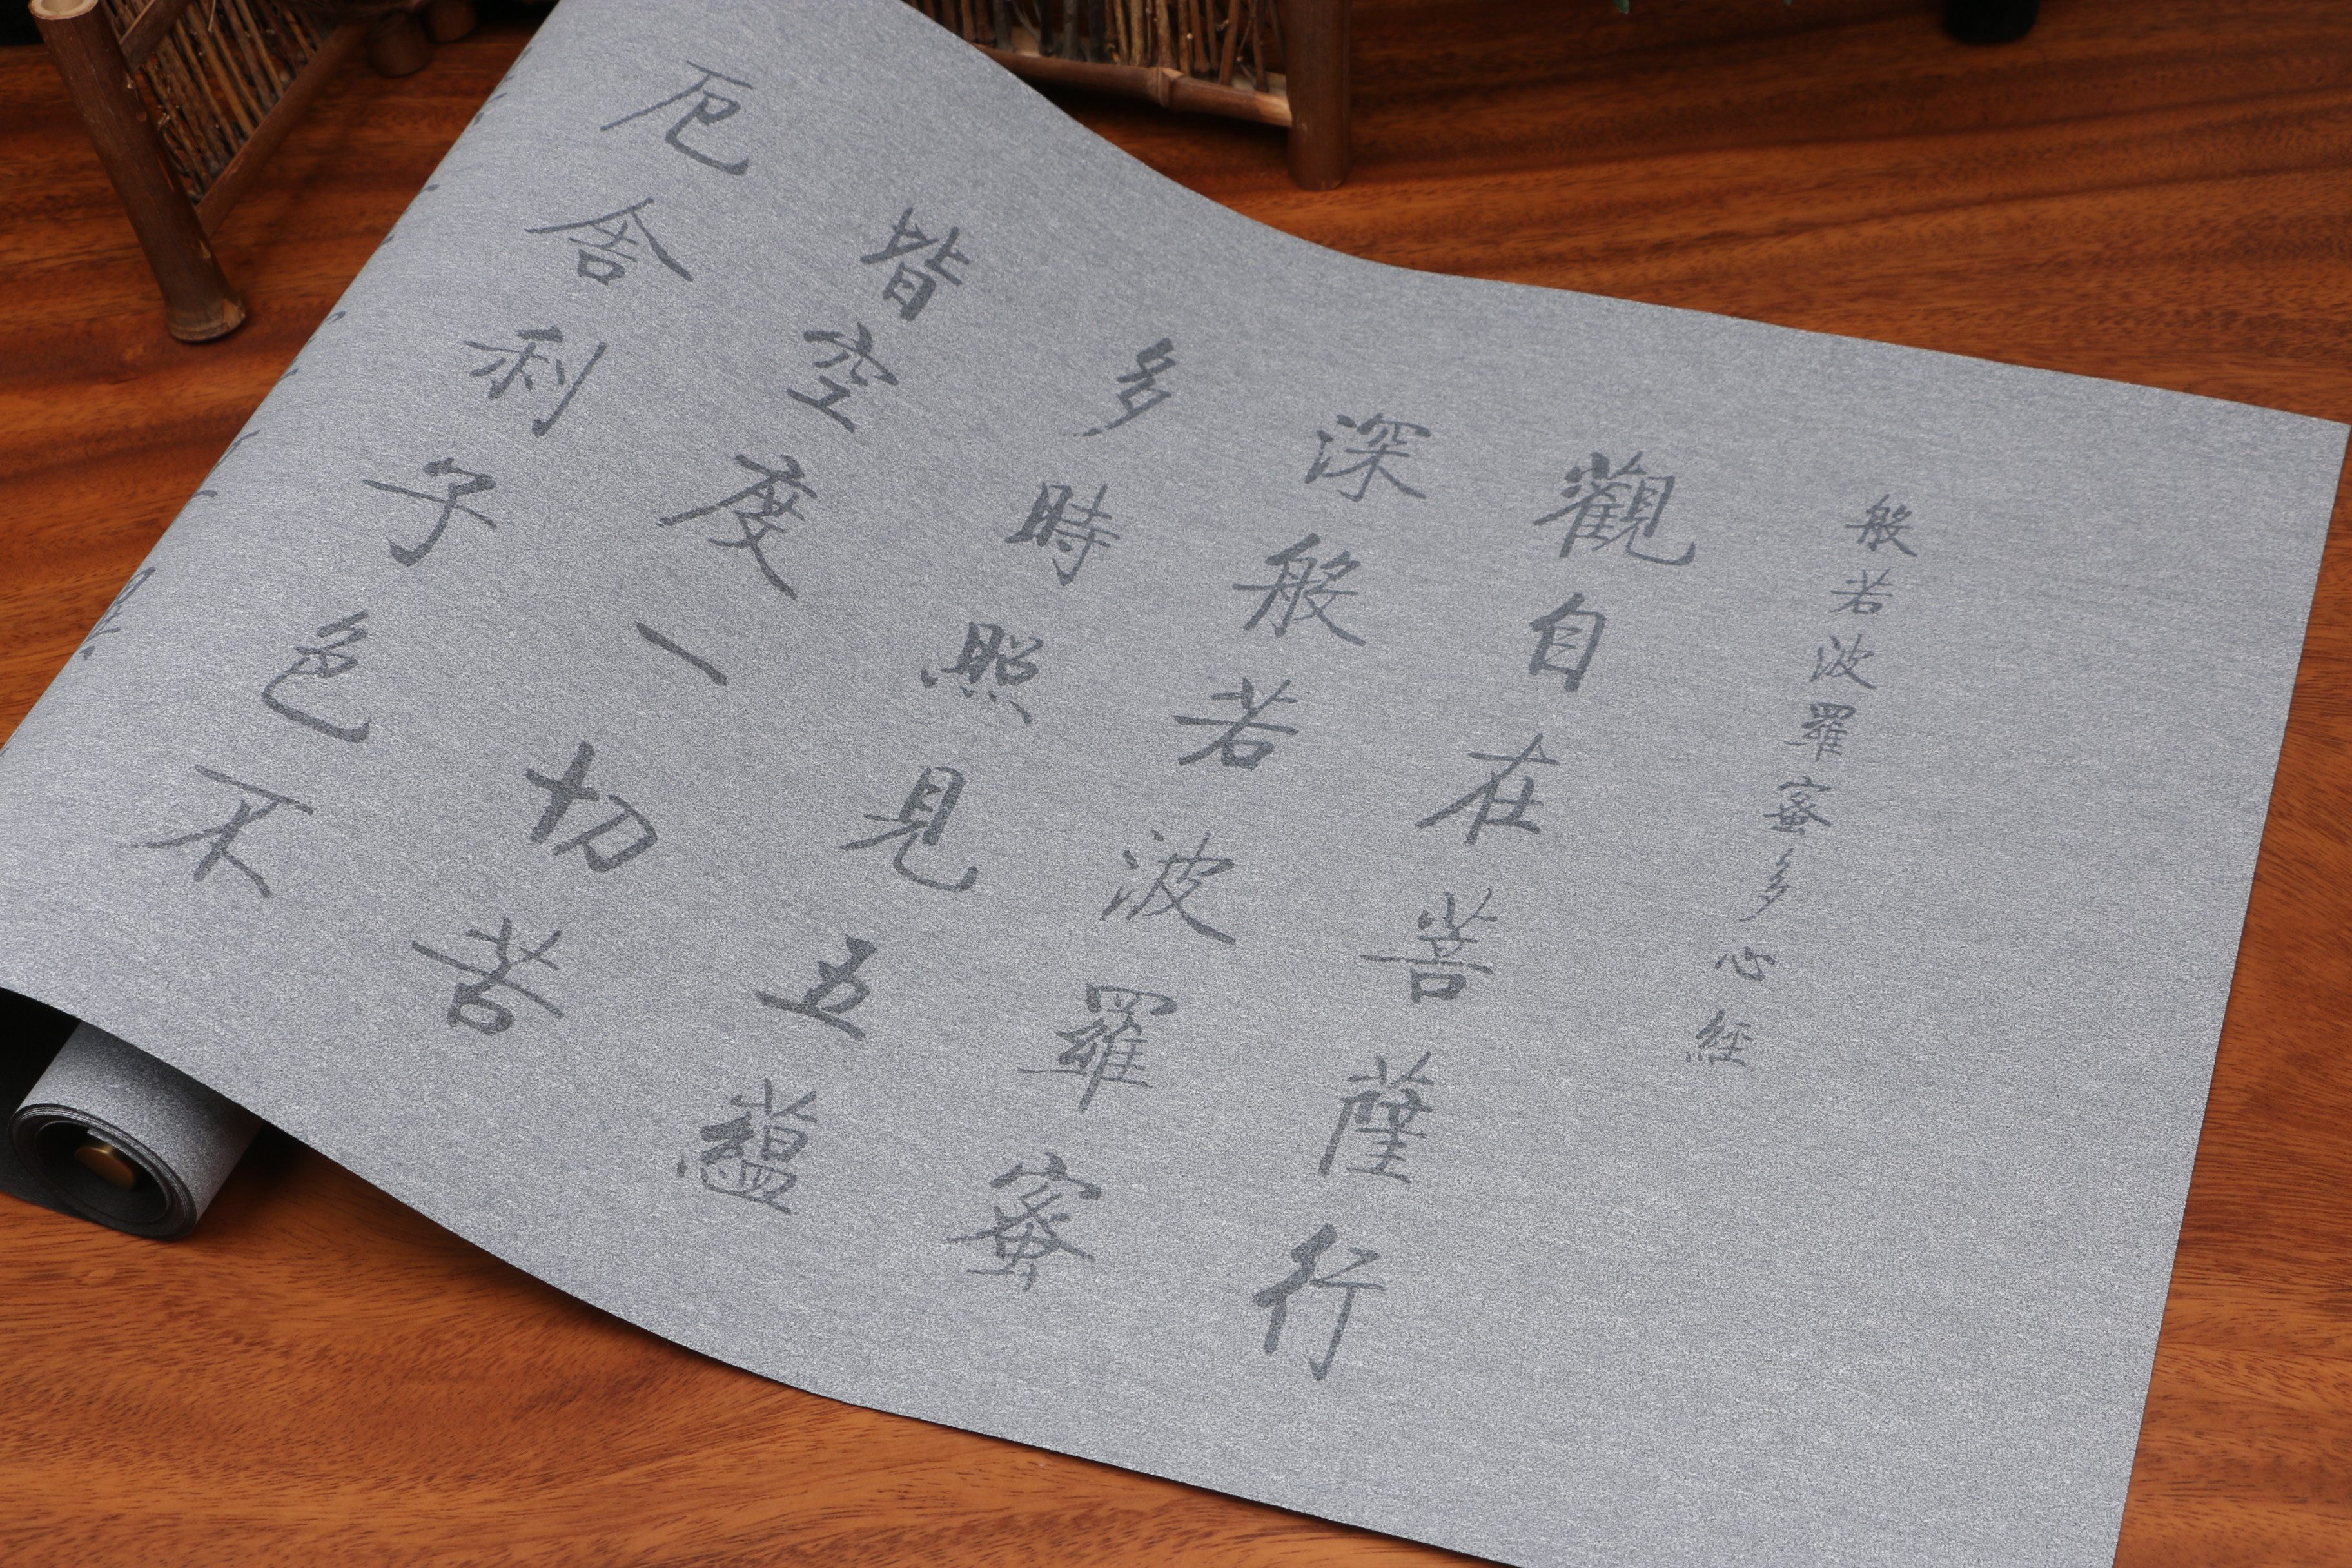 般若波羅蜜多心經
觀自在菩薩行
深般若波羅蜜
多時照見五蘊
皆空度一切苦
厄舍利子色不